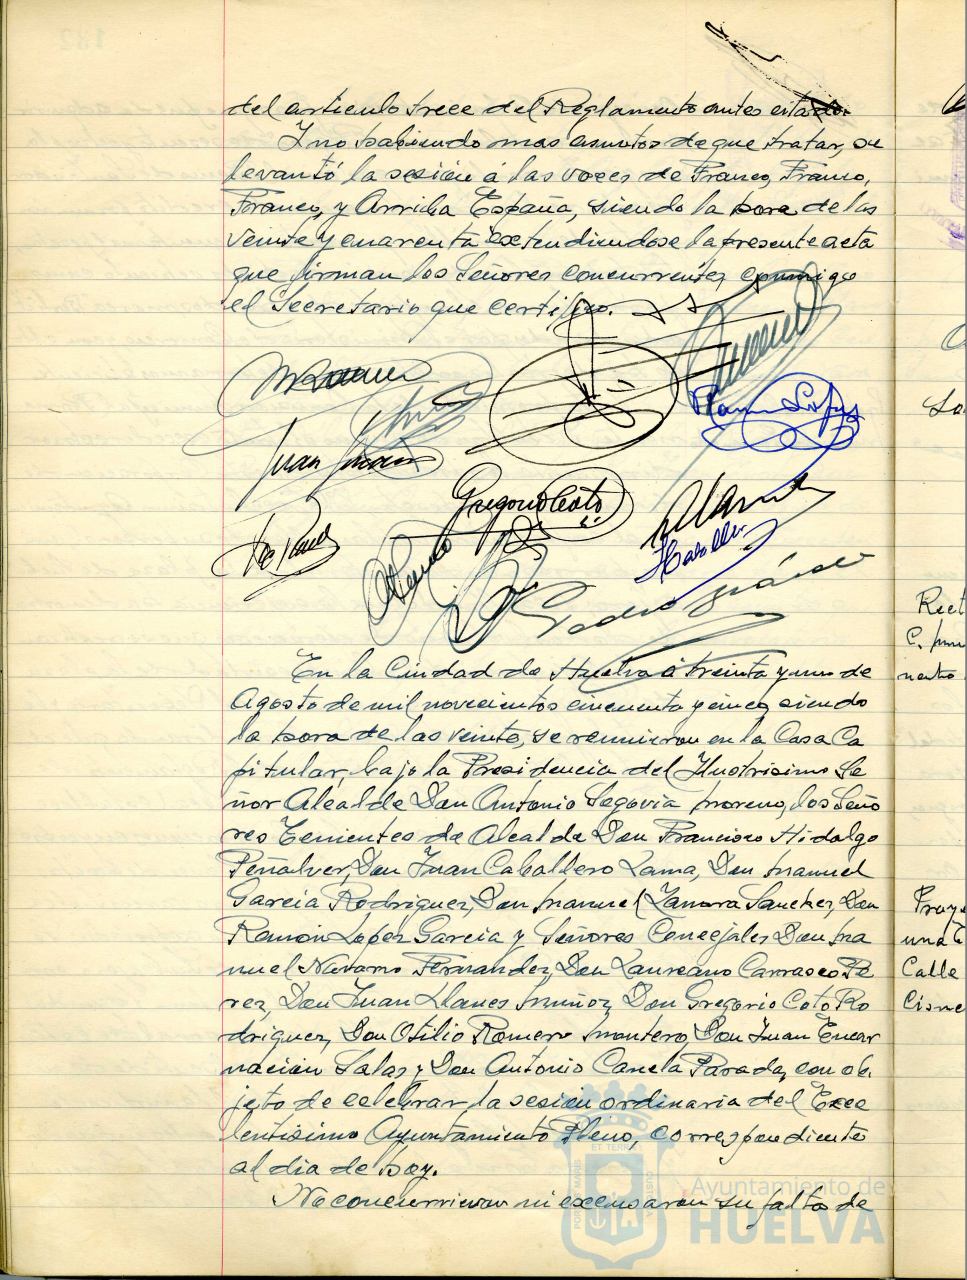 del articulo trece del Reglamento antes citado.
Y no habiendo mas asuntos de que tratar, se
levantó la sesión á las voces de Franco, Franco,
Franco, y Arriba España, siendo la hora de las
veinte y cuarenta extendiendose la presente acta
que firman los Señores concurrentes conmigo
el Secretario que certifico.
Ramon Lopez
Juan
Gregorio Coto
Caballero
Pedro
En la Ciudad de Huelva á treinta y uno de
Agosto de mil novecientos cincuenta y cinco, siendo
la hora de las veinte, se reunieron en la Casa Ca
pitular, bajo la Presidencia del Ilustrisimo Se
ñor Alcalde Don Antonio Segovia Moreno, los Seño
res Tenientes de Alcalde Don Francisco Hidalgo
Peñalver, Don Juan Caballero Lama, Don Manuel
Garcia Rodriguez, Don Manuel Zamora Sanchez, Don
Ramon Lopez Garcia y Señores Concejales Don Ma
nuel Navarro Fernandez, Don Laureano Carrasco Pe
rez, Don Juan Llanes Muñoz, Don Gregorio Coto Ro
driguez, Don Otilio Romero Montero, Don Juan Encar
nación Salas y Don Antonio Canela Parada, con ob
jeto de celebrar la sesión ordinaria del Exce
lentisimo Ayuntamiento Pleno, correspondiente
al dia de hoy.
No concurrieron ni excusaron su falta de
Ayuntamiento de
HUELVA
Rect
Proye
una C
Calle
Cisne